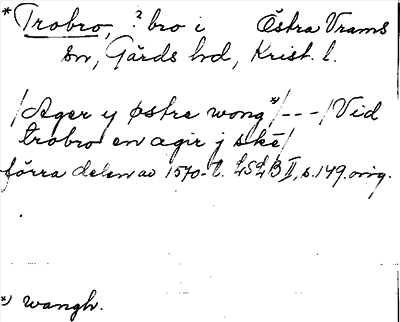 * Trobro, ? bro i Östra Vrams
sn, Gärds hd, Krist. l.
/Ager y østre wong*/---/Vid
trobro en agir j skE/
förra delen av 1570-t. LSLB II, s. 149. orig.
*) wangh.